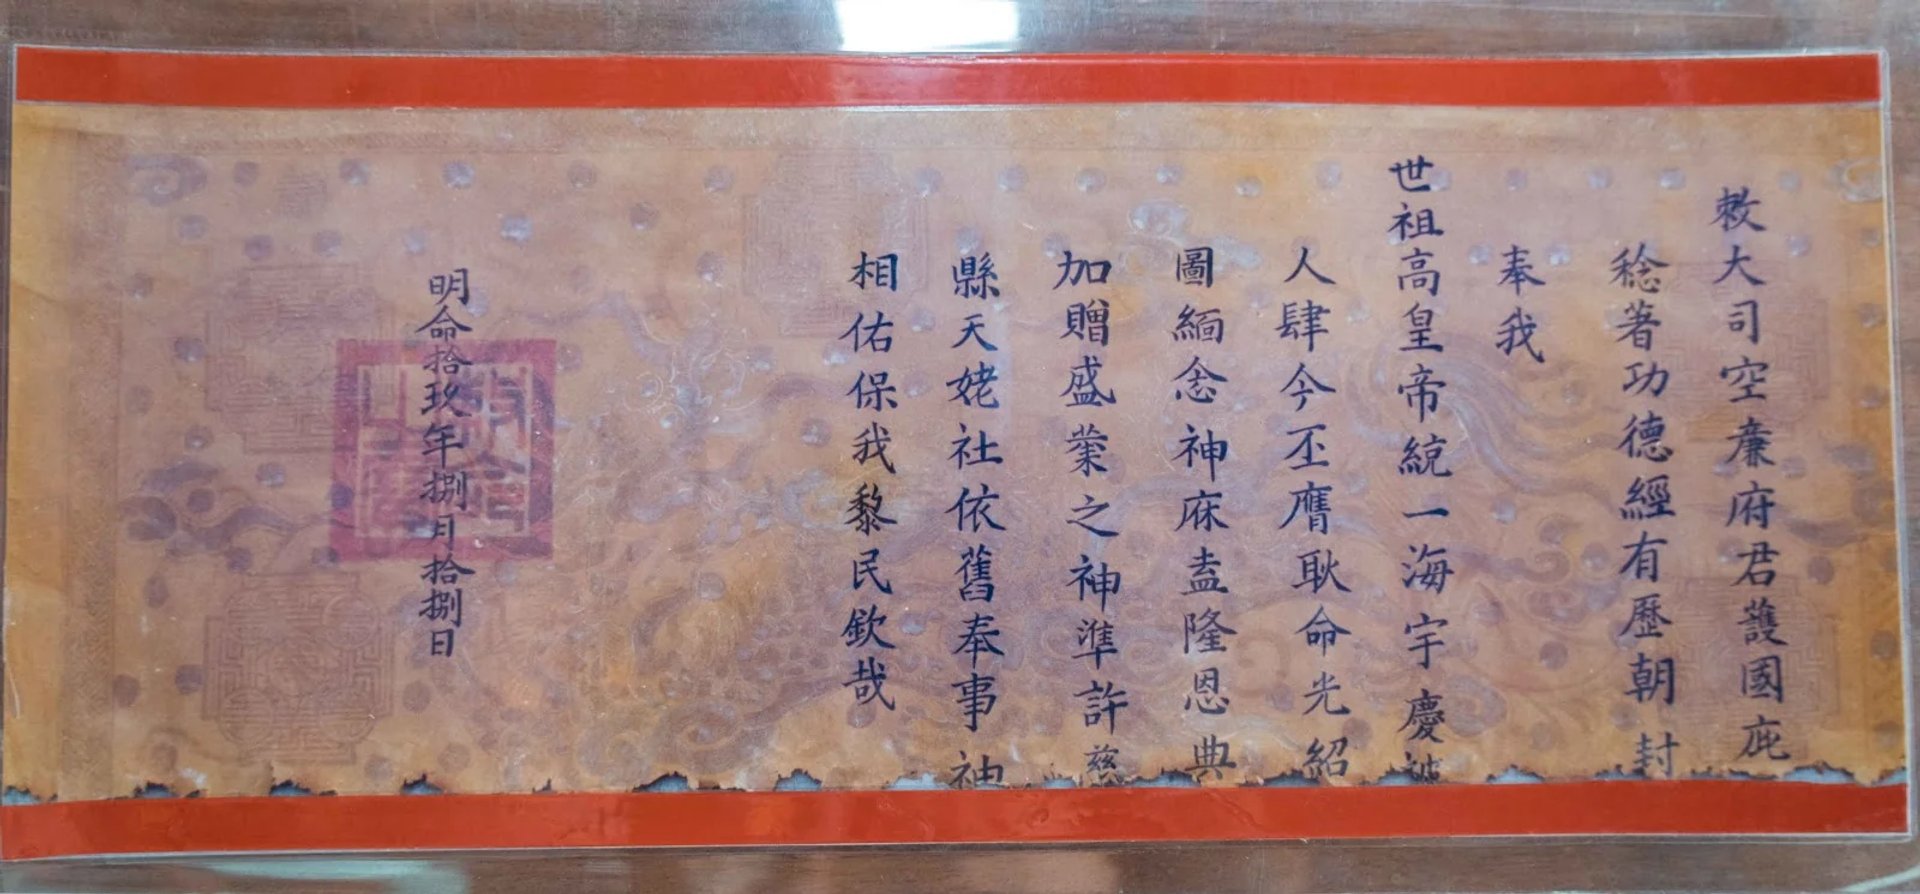 敕大司空廉府君護國庇
稔著功德經有歷朝封
奉我
世祖高皇帝統一海宇慶被
人肆今丕膺耿命光紹
圖緬念神庥盍隆恩典
加贈盛業之神準許慈
縣天姥社依舊奉事神
相佑保我黎民欽哉
明命拾玖年捌月拾捌日